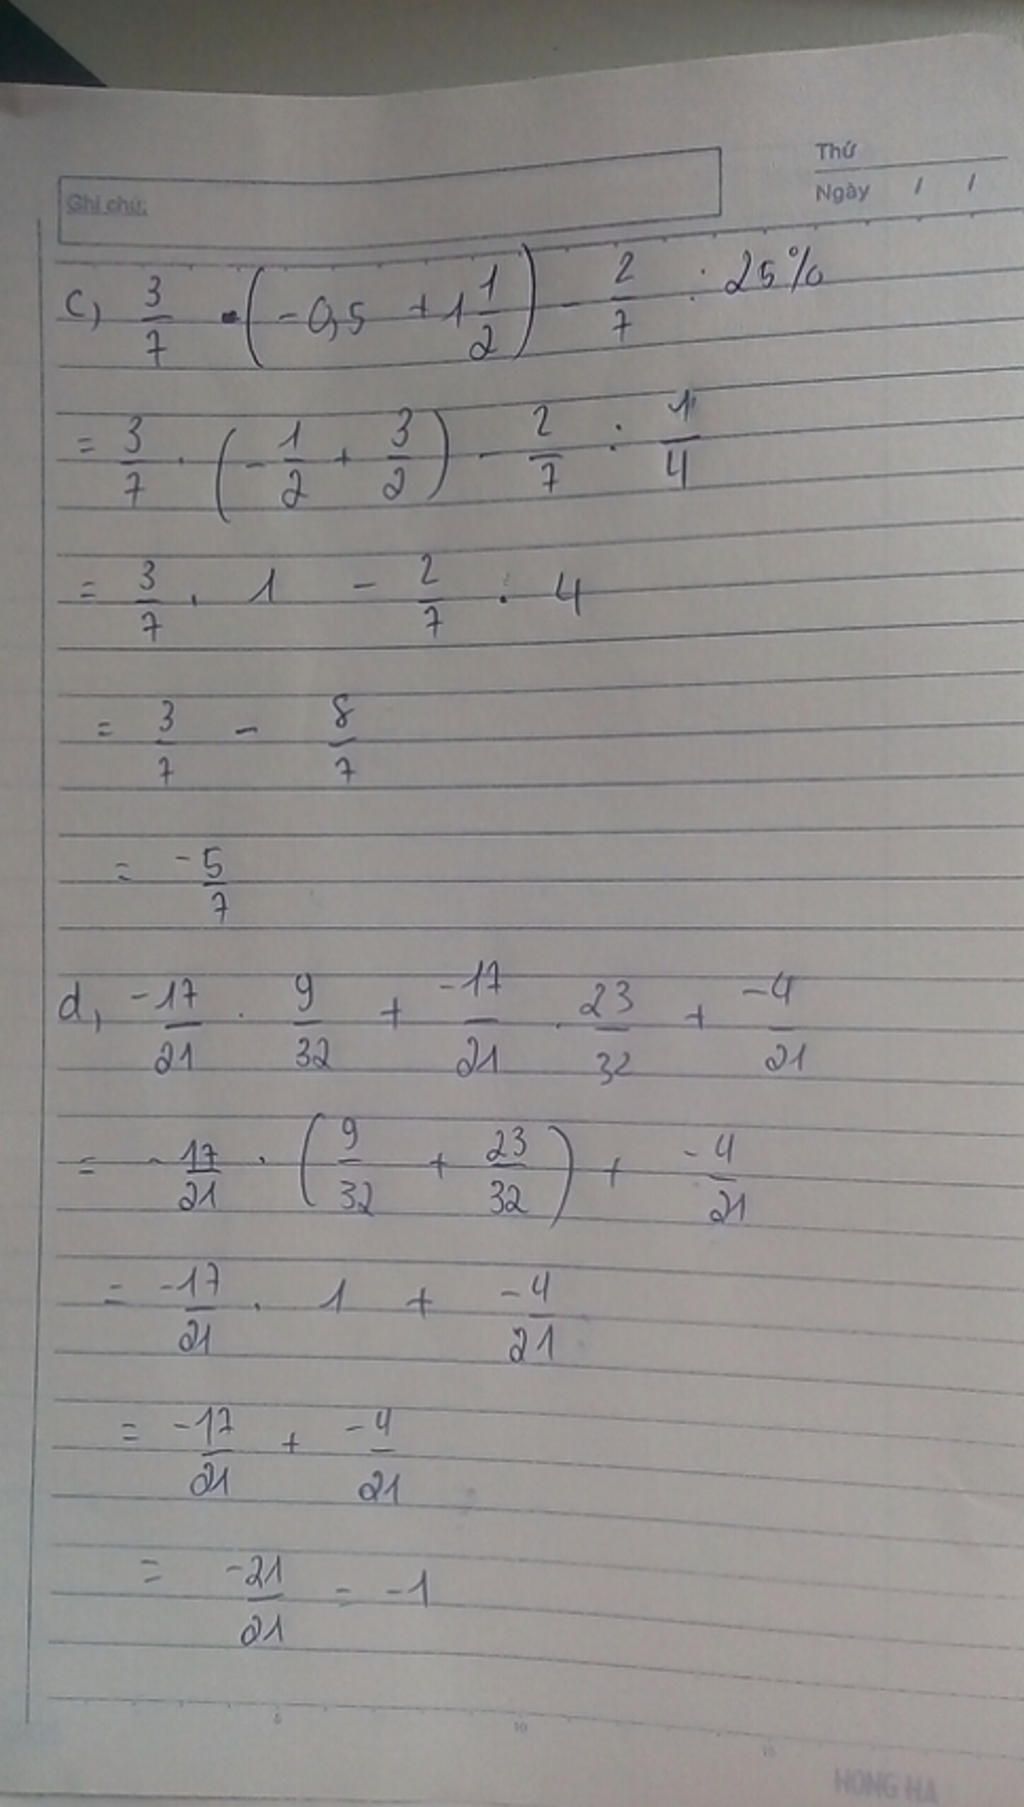 Thứ
Ghi chú:
Ngày / /
c, 3/7 · (-0,5 + 1 1/2) - 2/7 : 25%
= 3/7 · (-1/2 + 3/2) - 2/7 : 1/4
= 3/7 · 1 - 2/7 · 4
= 3/7 - 8/7
= -5/7
d, -17/21 · 9/32 + -17/21 · 23/32 + -4/21
= -17/21 · (9/32 + 23/32) + -4/21
= -17/21 · 1 + -4/21
= -17/21 + -4/21
= -21/21 = -1
5 10 15
HONG HA